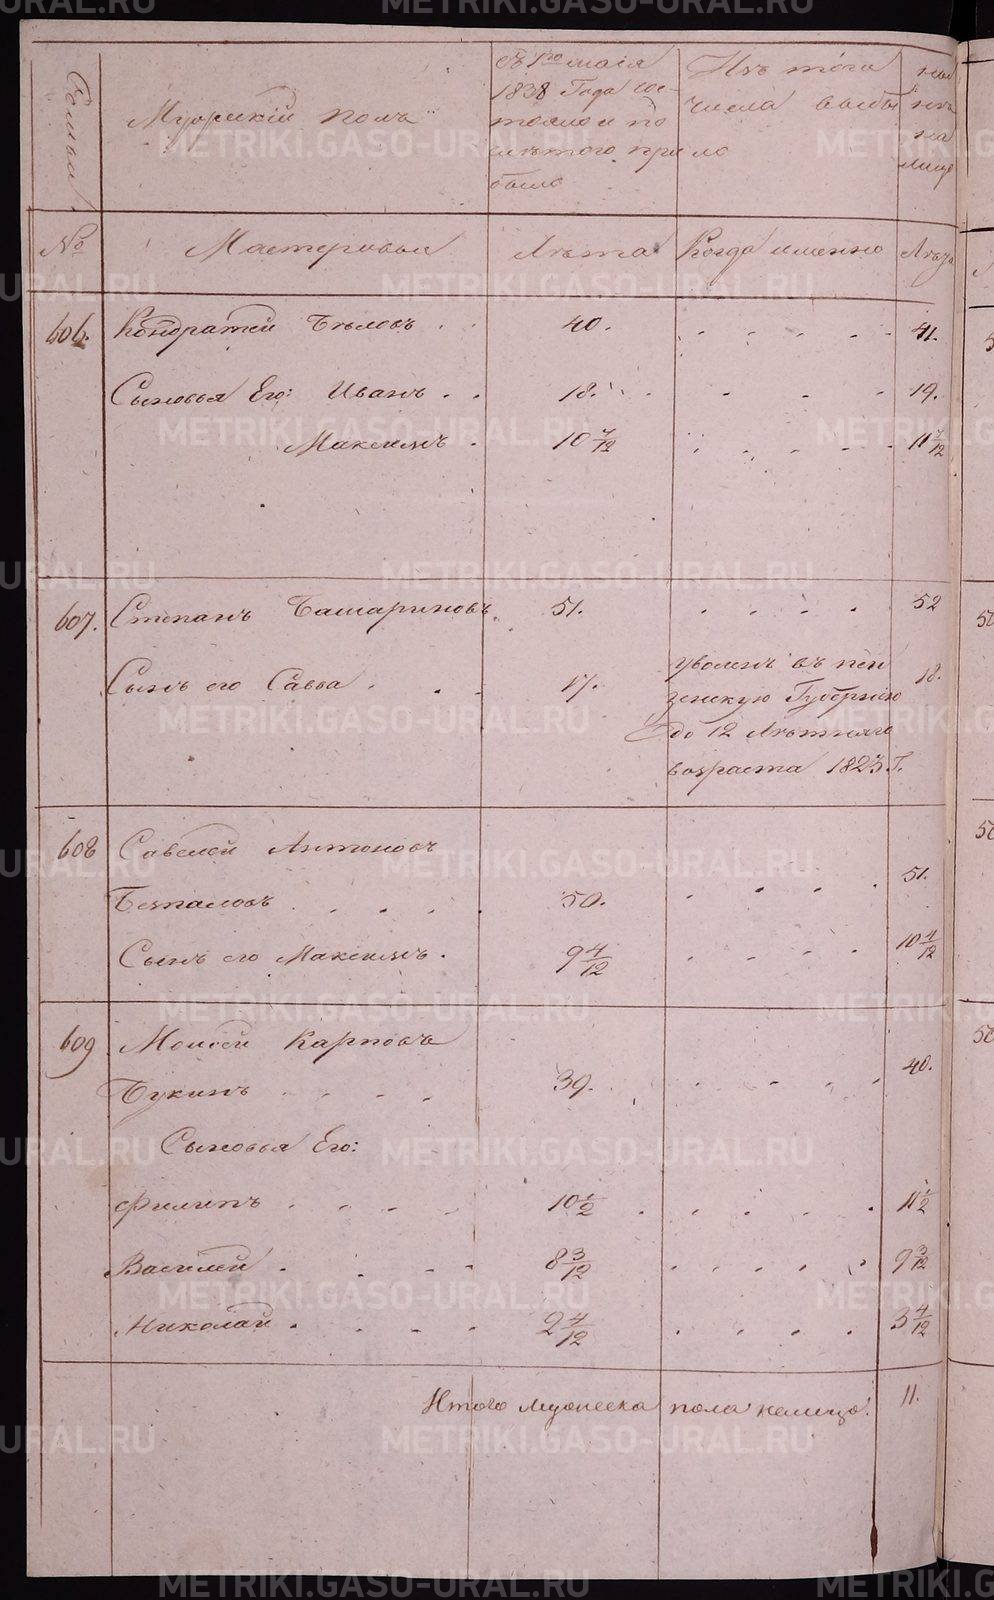 Семьи
Мужескій полъ
Съ 1го маія
1838 Года сос-
тояло и по
слѣ того при
было
Изъ того
числа выбы
ло
ны
нѣ
на
лице
№
Мастеровыя
Лѣта
Когда именно
Лѣта
606. Кондратей Бѣловъ . . 40. 41.
Сыновья Его: Иванъ . . 18. 19.
Максимъ . 10 4/12 11 4/12
607. Степанъ Башариновъ. 51. 52
Сынъ его Савва . . . 17. 18.
уволенъ въ пен
зенскую Губернію
до 12 Лѣтняго
возраста 1823 Г.
608 Савелей Антоновъ
Безпаловъ . . . . . 50. 51.
Сынъ его Максимъ. 9 4/12 10 4/12
609 Моисей Карповъ
Букинъ . . . . 39. 40.
Сыновья Его:
Филипъ . . . . 10 1/2 11 1/2
Василей . . . . 8 3/12 9 3/12
Николай . . . . 2 4/12 3 4/12
Итого мужеска пола налицо. 11.
METRIKI.GASO-URAL.RU